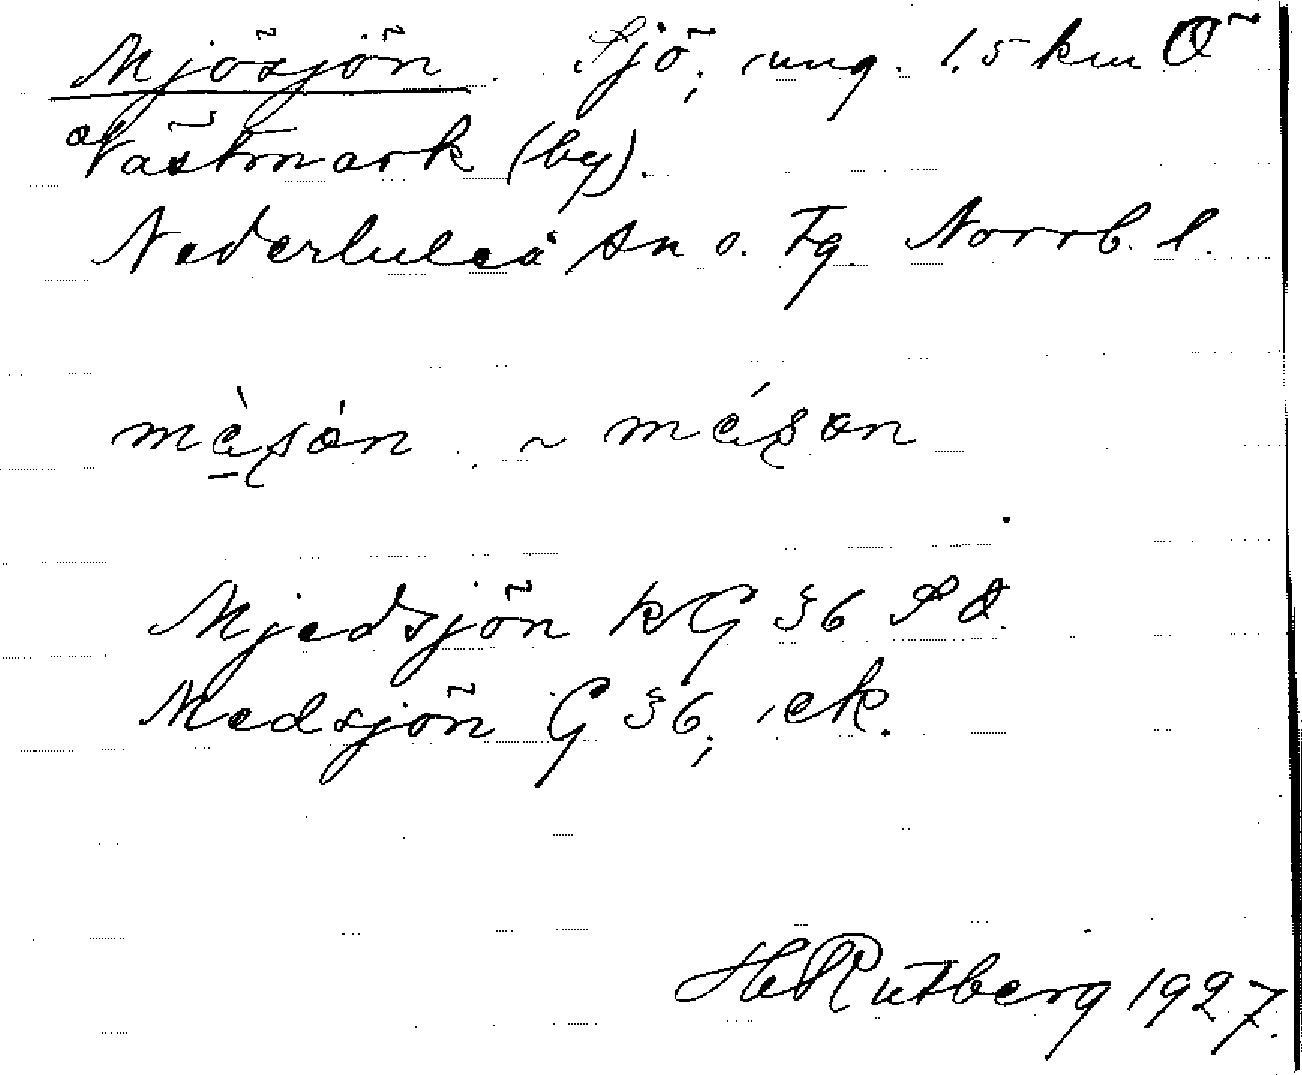 Mjösjön. Sjö; ung. 1.5 km Ö
av Västmark (by).
Nederluleå sn o. Tg. Norrb. l.
mèsón ~ méson
Mjedsjön kG 36
Medsjön G 36; ek.
H Rutberg 1927.